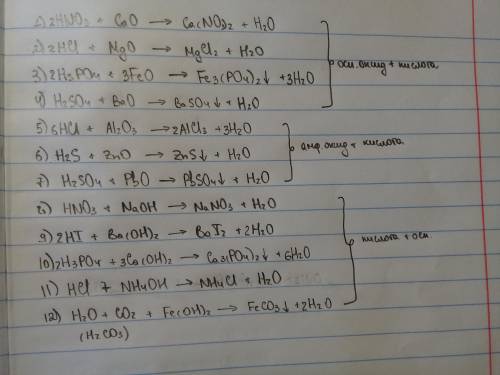 1) 2HNO3 + CaO → Ca(NO3)2 + H2O
2) 2HCl + MgO → MgCl2 + H2O
3) 2H3PO4 + 3FeO → Fe3(PO4)2↓ + 3H2O
4) H2SO4 + BaO → BaSO4↓ + H2O
осн. оксид + кислота
5) 6HCl + Al2O3 → 2AlCl3 + 3H2O
6) H2S + ZnO → ZnS↓ + H2O
7) H2SO4 + PbO → PbSO4↓ + H2O
амф. оксид + кислота
8) HNO3 + NaOH → NaNO3 + H2O
9) 2HI + Ba(OH)2 → BaI2 + 2H2O
10) 2H3PO4 + 3Ca(OH)2 → Ca3(PO4)2↓ + 6H2O
11) HCl + NH4OH → NH4Cl + H2O
12) H2O + CO2 + Fe(OH)2 → FeCO3↓ + 2H2O
(H2CO3)
кислота + осн.